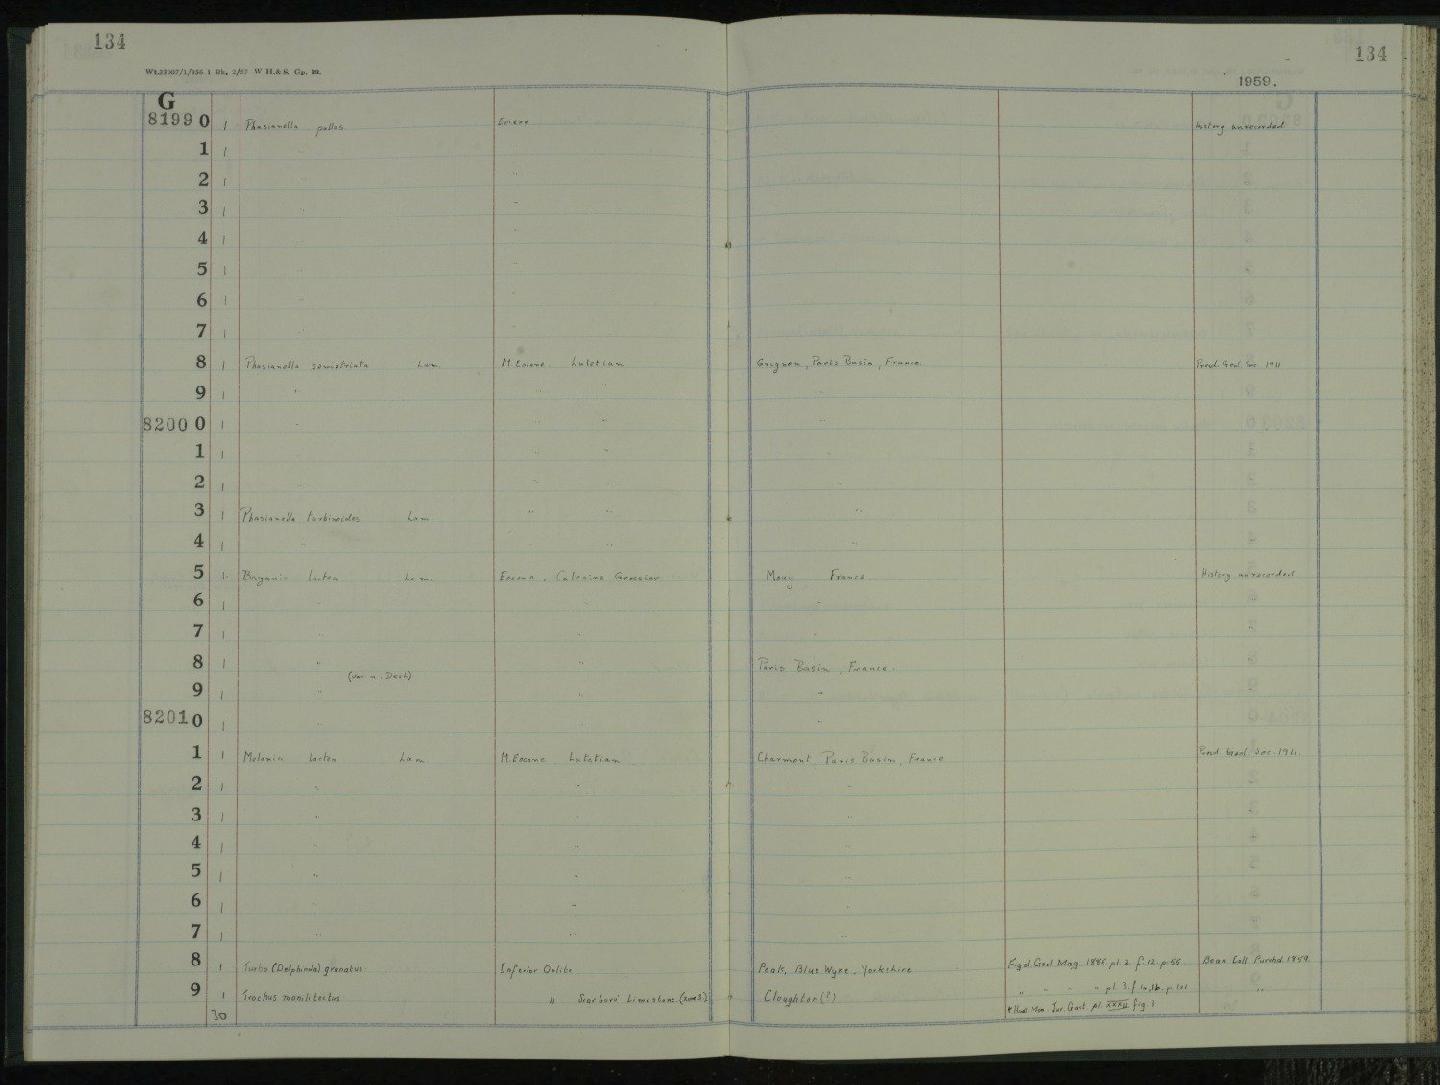 134
134
Wt.33107/1/156 1 Bk. 2/57 W H.& S. Gp. 10.
1959.
G
81990 1 Phasianella pullus Eocene History unrecorded
1 1 "
2 1 "
3 1 " "
4 1 " "
5 1 " "
6 1 " "
7 1 " "
8 1 Phasianella semistriata Lam. M. Eocene. Lutetian Grignon, Paris Basin, France. Presd. Geol. Soc. 1911
9 1 " " "
82000 1 " " " "
1 1 " " "
2 1 " " " "
3 1 Phasianella turbinoides Lam " " "
4 1 " " " "
5 1 Lactea Lam. Eocene. Calcaire Grossier Mouy France History unrecorded
6 1 " "
7 1 " " "
8 1 " " Paris Basin, France.
(var. a. Desh)
9 1 " " "
82010 1 " " "
1 1 Melania lactea Lam M. Eocene Lutetian Charmont Paris Basin, France Presd. Geol. Soc. 1911.
2 1 " " "
3 1 " " "
4 1 " " "
5 1 " " "
6 1 " " "
7 1 " " "
8 1 Turbo (Delphinula) granatus Inferior Oolite Peak, Blue Wyke, Yorkshire Figd. Geol. Mag. 1885 pl. 2. f. 12. p. 55 Bean Coll. Purchd. 1859.
9 1 Trochus monilitectus " Scarboro' Limestone (zone 3) Cloughton (?) " " " " pl. 3. f. 1a, 1b. p. 101 "
30 * Huds. Mon. Jur. Gast. pl. XXXII fig. 1